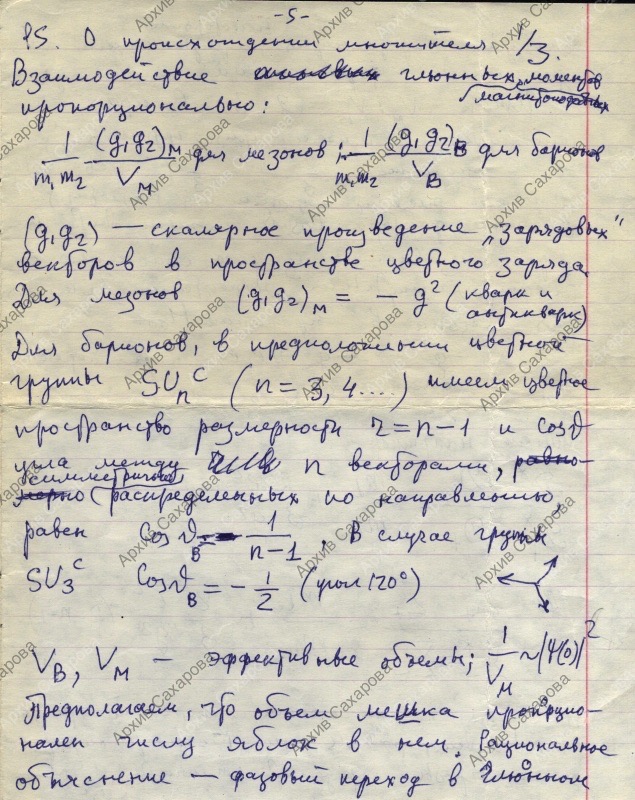 -5-
PS. О происхождении множителя 1/3.
Взаимодействие глюнных моментов
магнитоподобных
пропорционально:
1/(m₁m₂) (g₁g₂)_M/V_M для мезонов; 1/(m₁m₂) (g₁g₂)_B/V_B для барионов
(g₁g₂) — скалярное произведение „зарядовых"
векторов в пространстве цветного заряда
Для мезонов (g₁g₂)_M = - g² (кварк и
антикварк)
Для барионов, в предположении цветной
группы SU_n^c (n=3,4...) имеем цветное
пространство размерности r=n-1 и cosϑ
угла между n векторами, равно-
мерно симметрично распределенных по направлению,
равен Cosϑ_B = - 1/(n-1). В случае группы
SU₃^c Cosϑ_B = - 1/2 (угол 120°)
V_B, V_M — эффективные объемы; 1/V_M ~ |Ψ(0)|²
Предполагаем, что объем мешка пропорцио-
нален числу яблок в нем. Рациональное
объяснение — фазовый переход в глюонном
Архив Сахарова